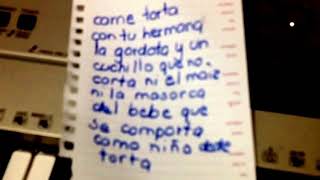 come torta
con tu hermana
la gordota y un
cuchillo que no
corta ni el maiz
ni la masorca
del bebe que
se comporta
como niño de
torta